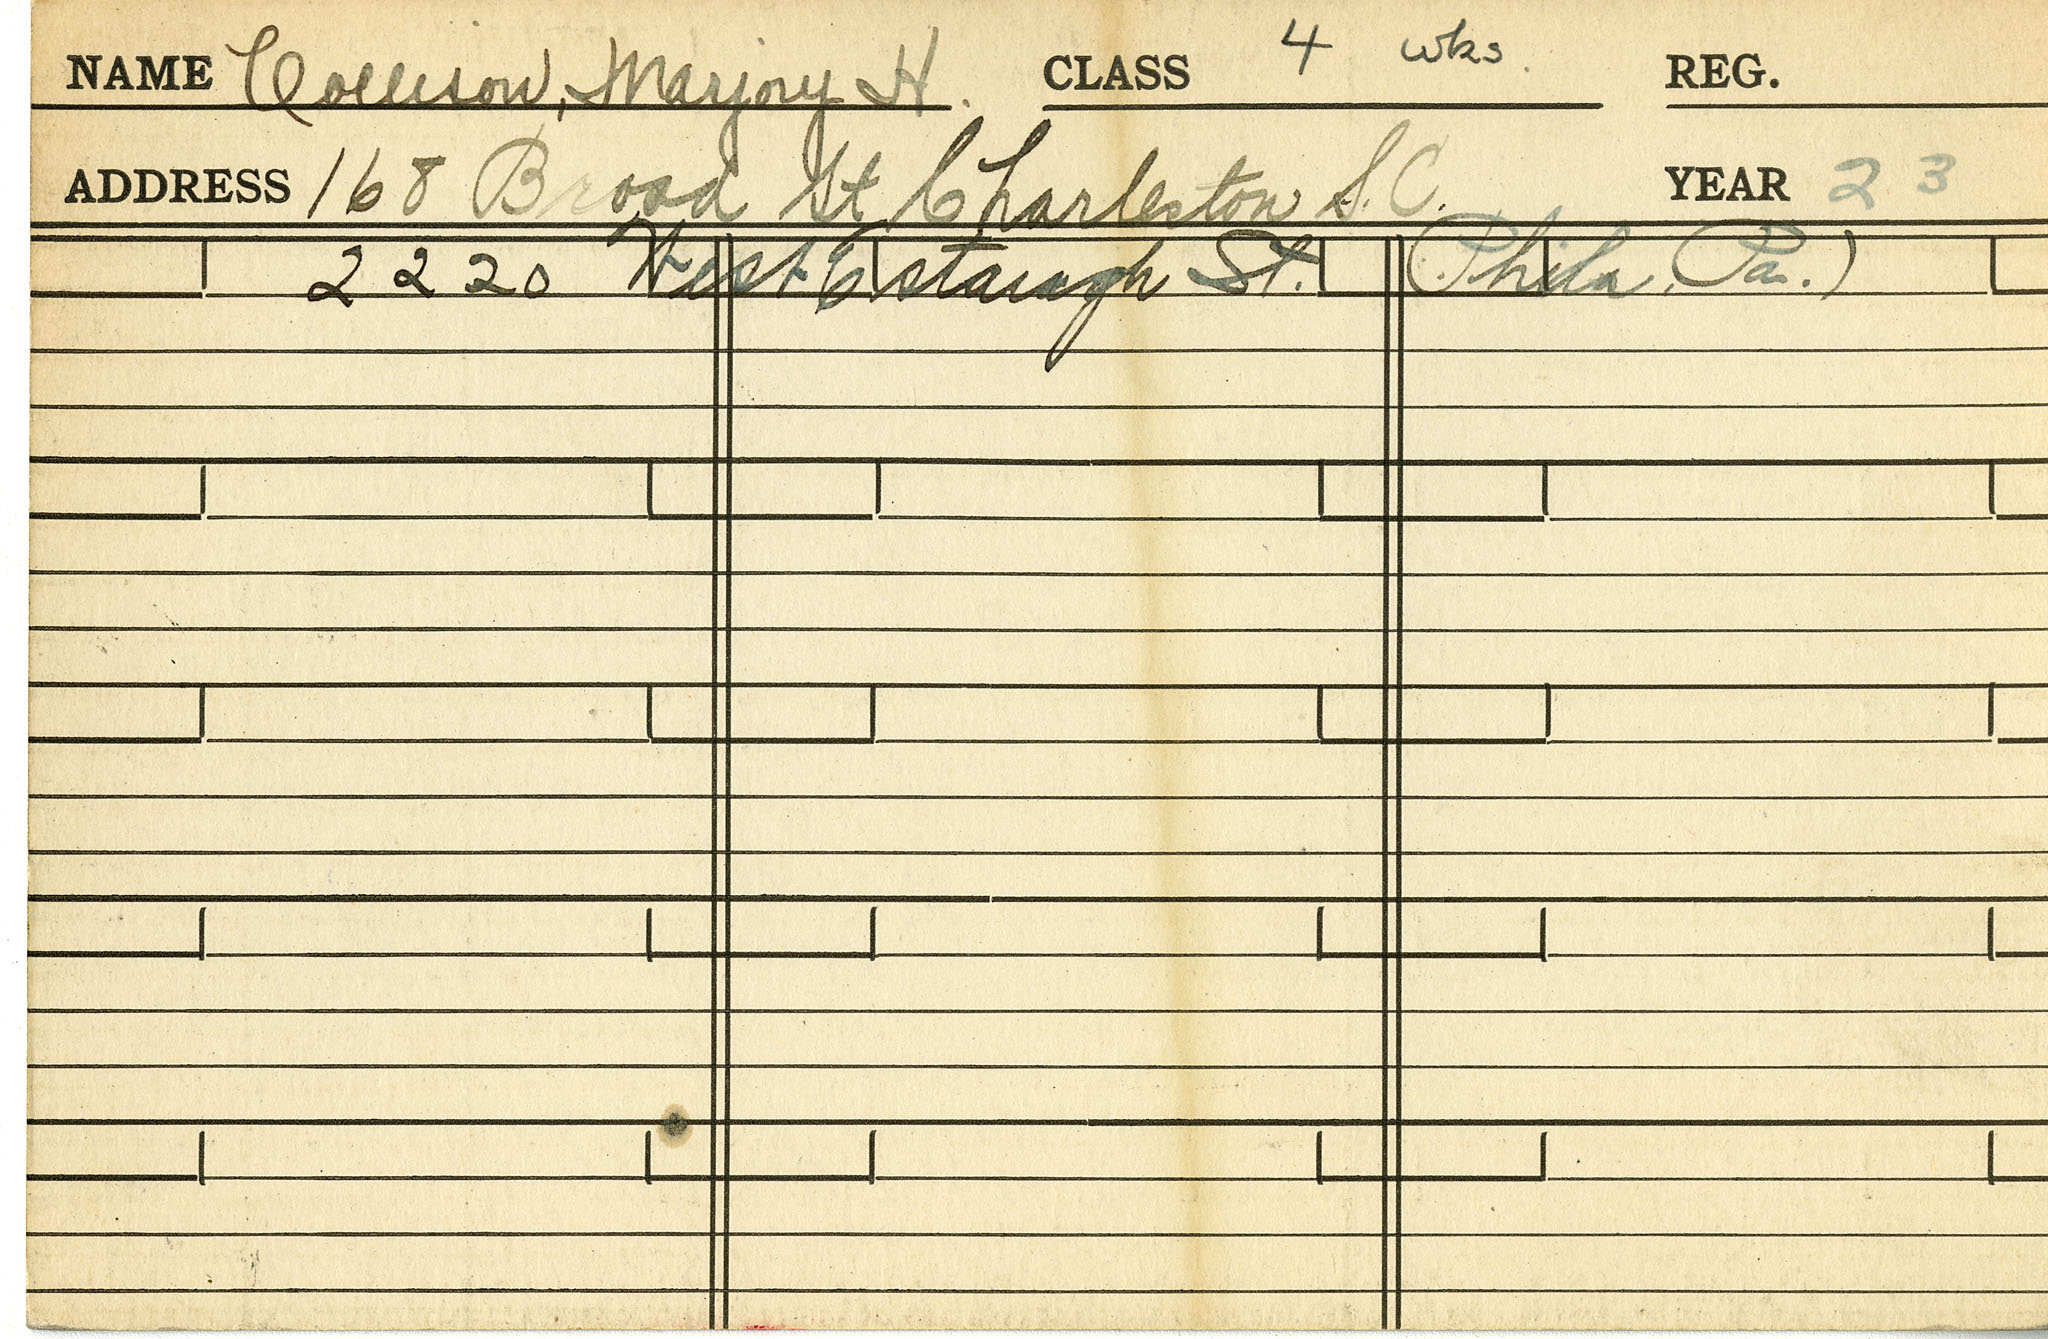 NAME Collison, Marjory H. CLASS 4 wks. REG.
ADDRESS 168 Broad St Charleston S.C. YEAR 23
2220 West Estaugh St. (Phila. Pa.)